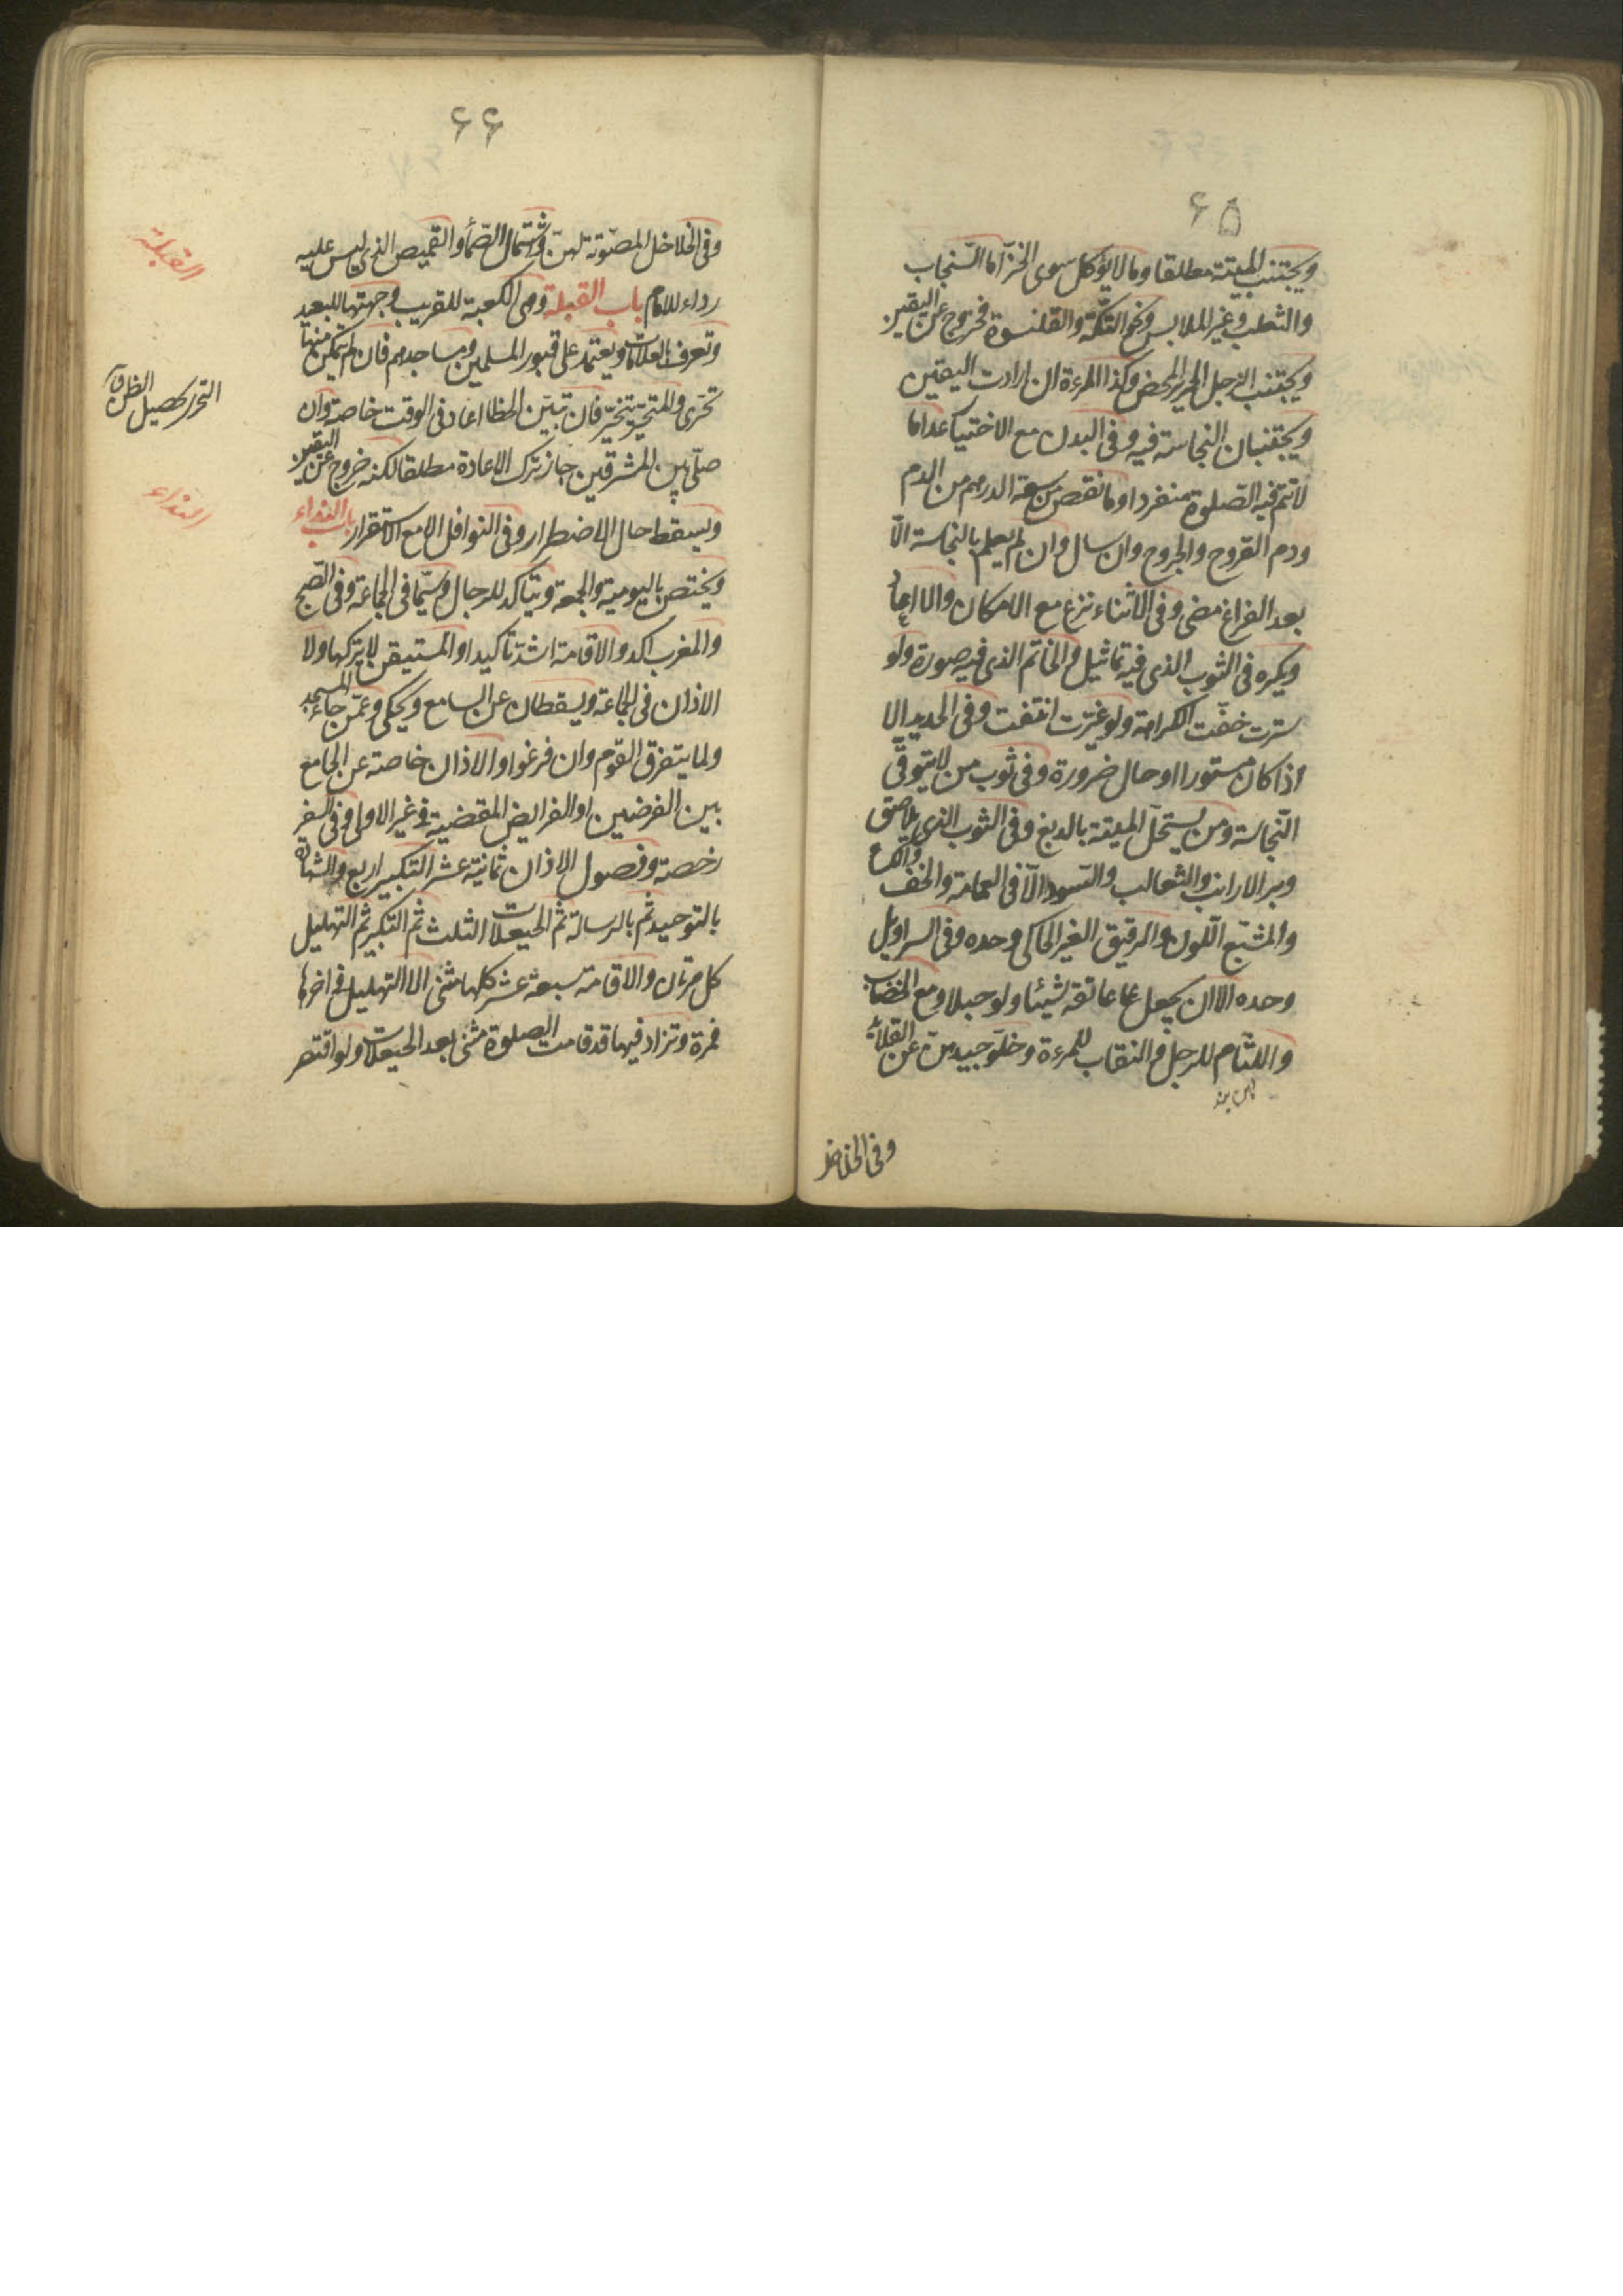 ٦٥
ويجتنب الميتة مطلقا وما لا يؤكل سوى الخز اما السنجاب
والثعلب وغير الملابس ونحو التكة والقلنسوة فخروج عن اليقين
ويجتنب الرجل الحرير المحض وكذا المرءة ان ارادت اليقين
ويجتنبان النجاسة فيه وفي البدن مع الاختيا عدا ما
لا تتم فيه الصلوة منفردا وما نقص من سعة الدرهم من الدم
ودم القروح والجروح وان سال وان لم يعلم بالنجاسة الا
بعد الفراغ مضى وفي الاثناء نزع مع الامكان والا اعاد
ويكره في الثوب الذى فيه تماثيل والخاتم الذى فيه صورة ولو
سترت خفت الكراهة ولو غيرت انتفت وفي الحديد الا
اذا كان مستورا او حال ضرورة وفي ثوب من لا يتوقى
النجاسة ومن يستحل الميتة بالدبغ وفي الثوب الذى يلاصق
وبر الارانب والثعالب والسود الا في العمامة والخف والكساء
والمشبع اللون والرقيق الغير الحاكى وحده وفي السراويل
وحده الا ان يجعل على عاتقه شيئا ولو حبلا ومع الخضاب
واللثام للرجل والنقاب للمرءة وخلو جيدهن عن القلادة
وفي الخلاخل
٦٦
وفي الخلاخل المصوتة لهن واشتمال الصماء والقميص الذى ليس عليه
رداء للامام باب القبلة وهى الكعبة للقريب وجهتها للبعيد
وتعرف بالعلامات ويعتمد على قبور المسلمين ومساجدهم فان لم يتمكن منها
تحرى والمتحير يتخير فان تبين الخطا اعاد في الوقت خاصة وان
صلى بين المشرقين جاز ترك الاعادة مطلقا لكنه خروج عن اليقين
ويسقط حال الاضطرار وفي النوافل الا مع الاستقرار باب النداء
ويختص باليومية والجمعة ويتاكد للرجال وسيما في الجماعة وفي الصبح
والمغرب اكد والاقامة اشد تاكيدا والمستيقن لا يتركها ولا
الاذان في الجماعة ويسقطان عن السامع ويحكى وعمن جاء المسجد
ولما يتفرق القوم وان فرغوا والاذان خاصة عن الجامع
بين الفرضين او الفرايض المقضية في غير الاولى وفي السفر
رخصة وفصول الاذان ثمانية عشر التكبير اربع والشهادة
بالتوحيد ثم بالرسالة ثم الحيعلات الثلث ثم التكبير ثم التهليل
كل مرتان والاقامة سبعة عشر كلها مثنى الا التهليل في اخرها
فمرة وتزاد فيها قد قامت الصلوة مثنى بعد الحيعلات ولو اقتصر
القبلة
التحرى تحصيل الظن
النداء